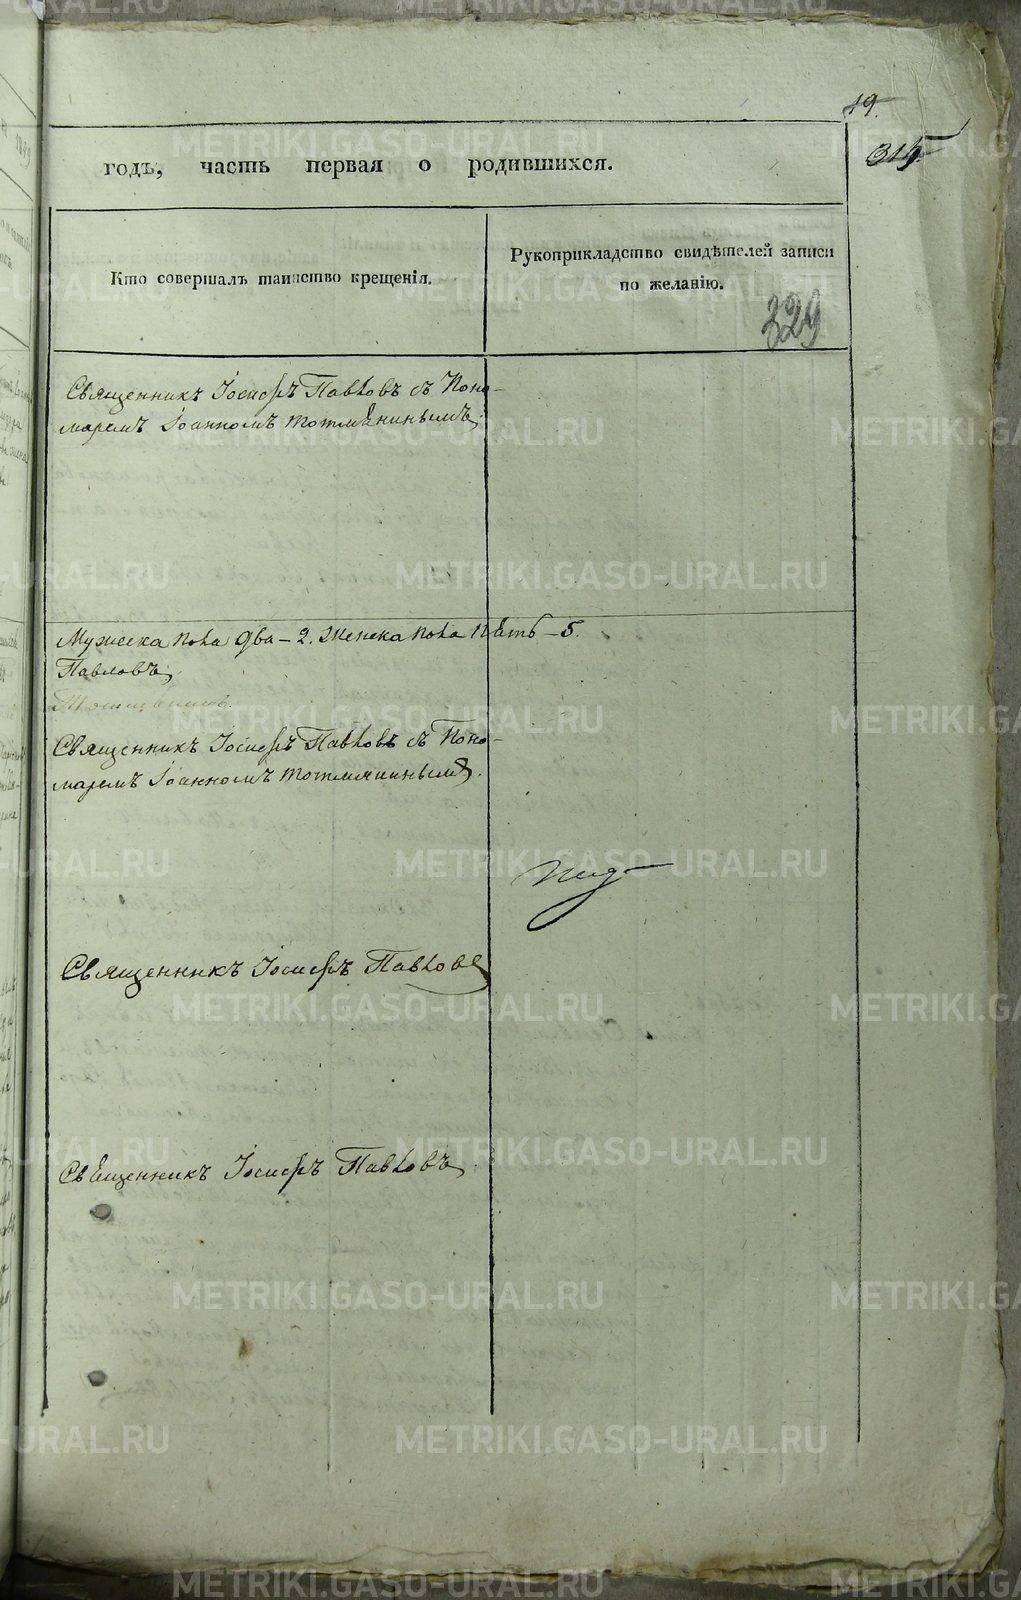 19.
315.
годъ, часть первая о родившихся.
Кто совершалъ таинство крещенія.
Рукоприкладство свидѣтелей записи
по желанію.
329
Священникъ Іосифъ Павловъ съ Поно-
маремъ Іоанномъ Тотмянинымъ
Мужеска пола два - 2. Женска пола пять - 5.
Павловъ
Священникъ Іосифъ Павловъ съ Поно-
маремъ Іоанномъ Тотмянинымъ.
Священникъ Іосифъ Павловъ
Священникъ Іосифъ Павловъ
METRIKI.GASO-URAL.RU